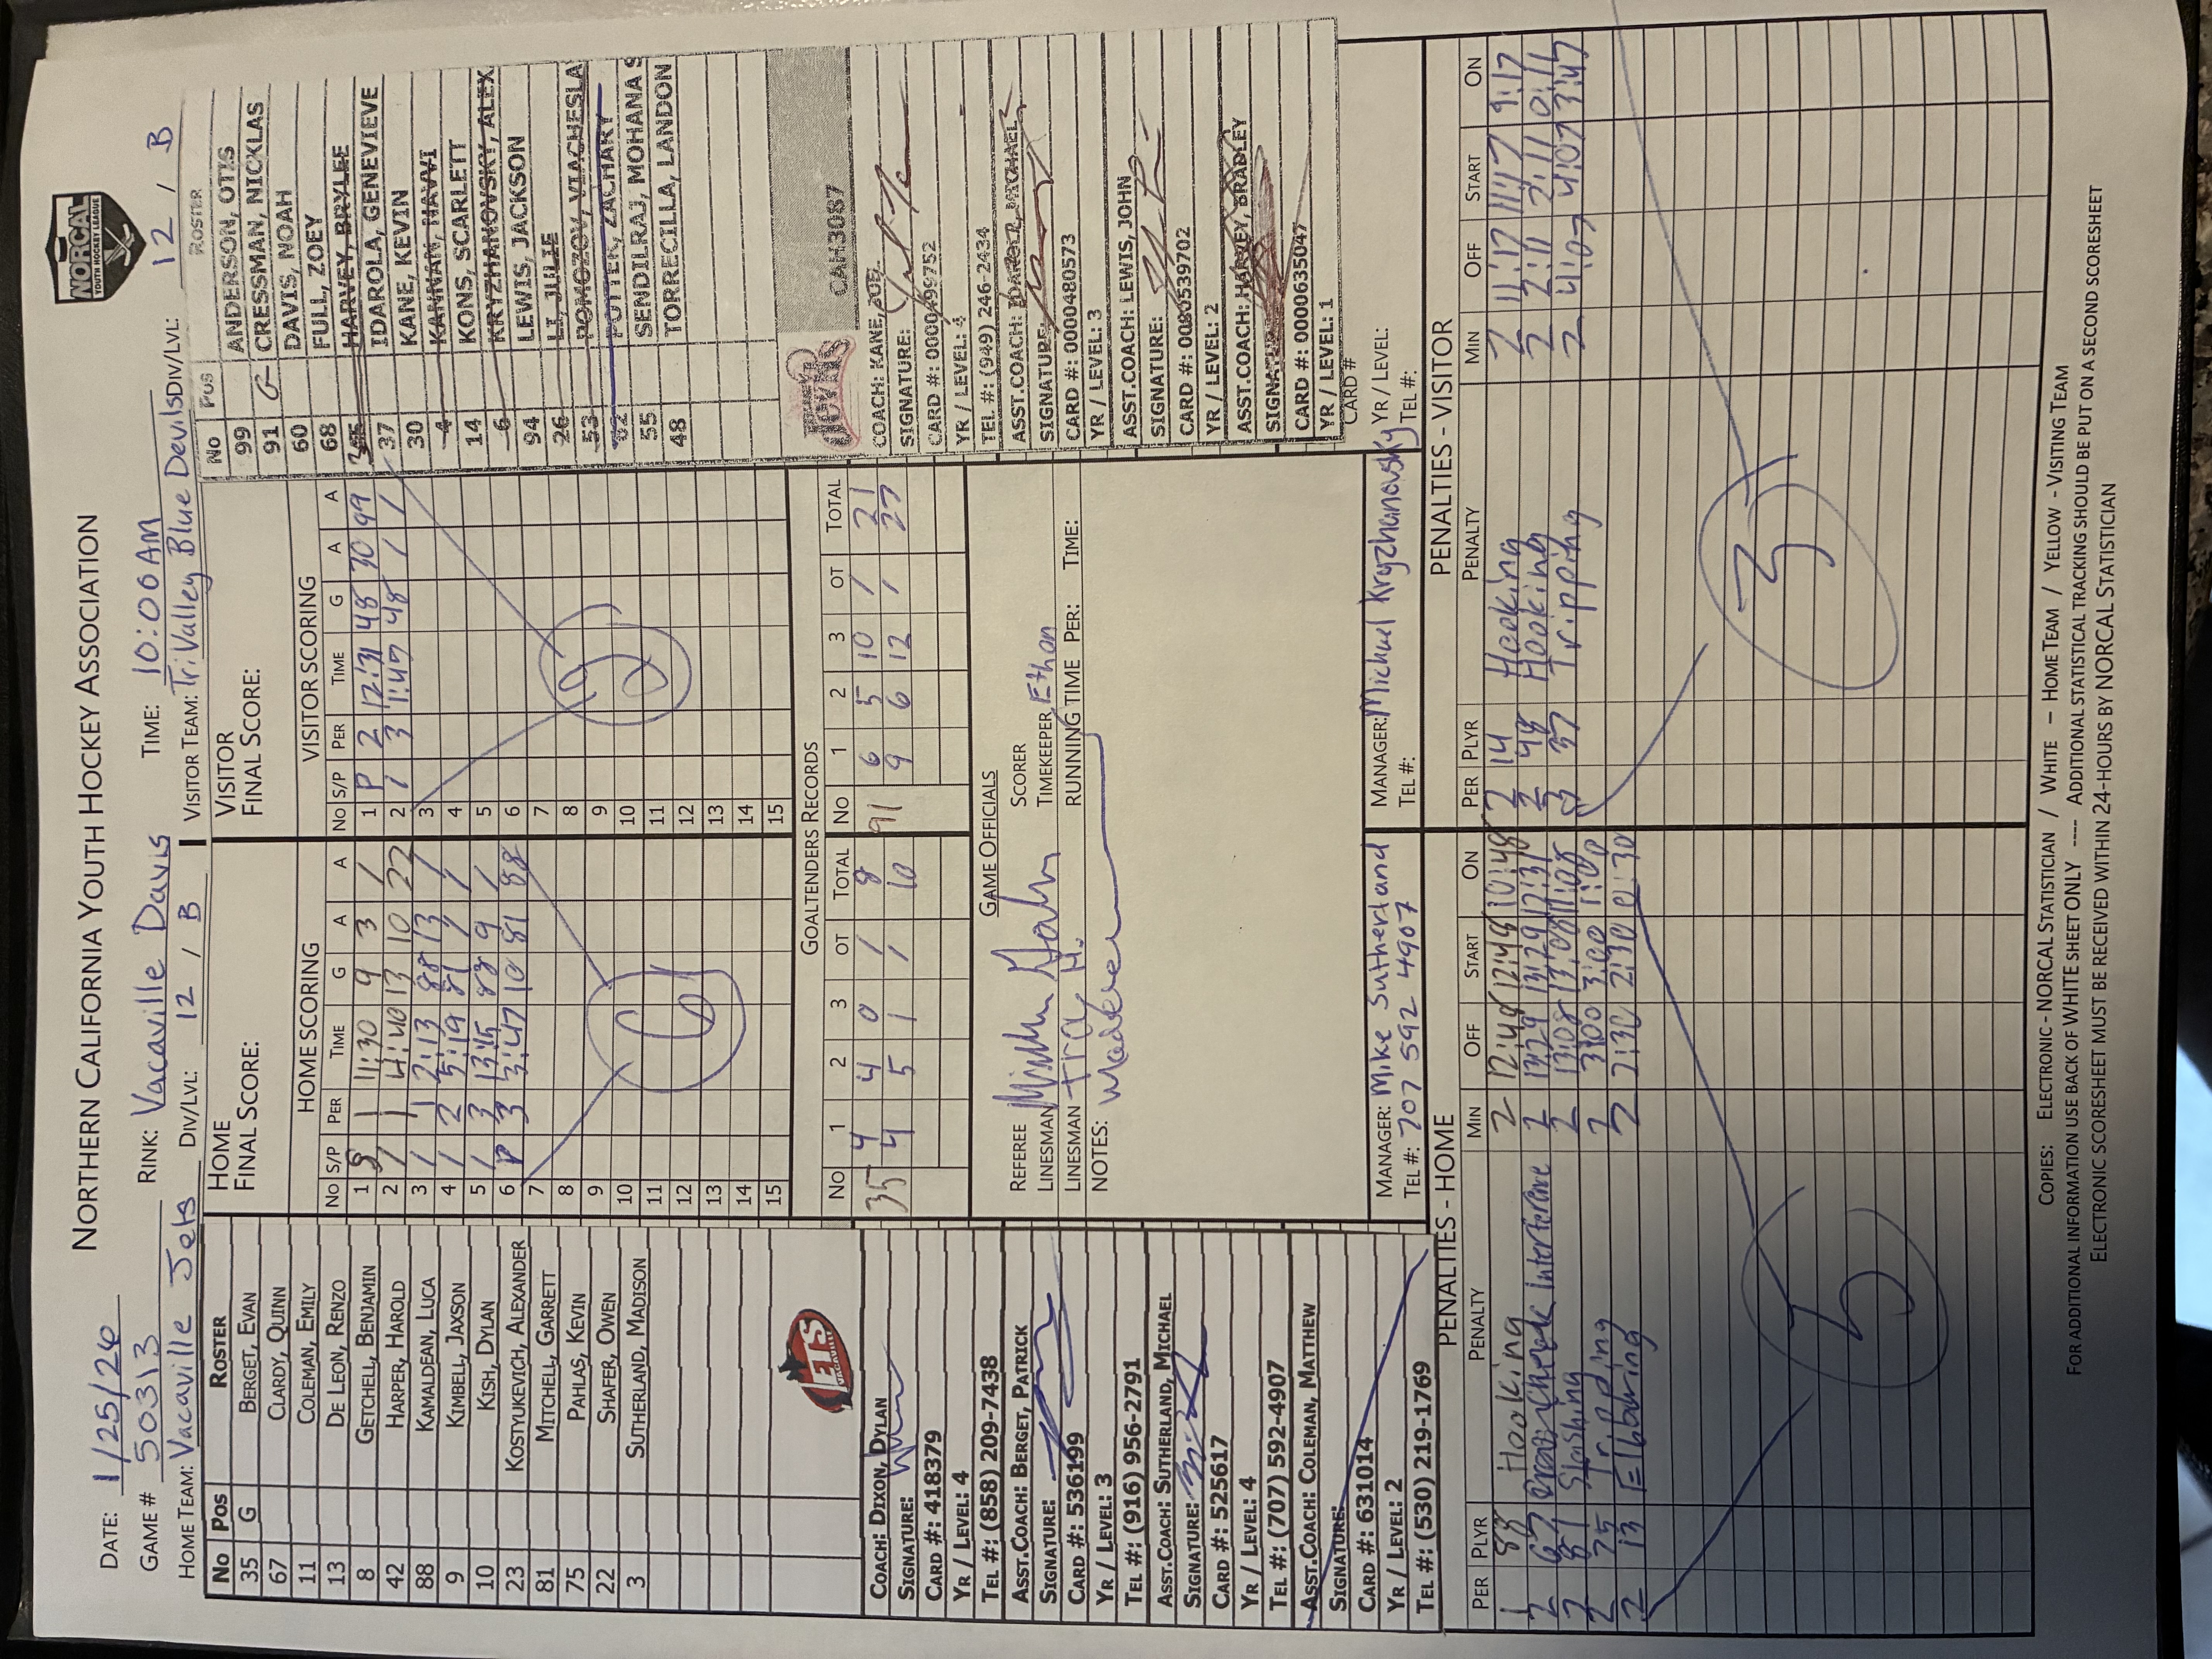 NORTHERN CALIFORNIA YOUTH HOCKEY ASSOCIATION
NORCAL
YOUTH HOCKEY LEAGUE
DATE: 1/25/26
GAME # 50313 RINK: Vacaville Davis TIME: 10:00AM
HOME TEAM: Vacaville Jets DIV/LVL: 12 / B VISITOR TEAM: TriValley Blue Devils DIV/LVL: 12 / B
No Pos ROSTER
35 G BERGET, EVAN
67 CLARDY, QUINN
11 COLEMAN, EMILY
13 DE LEON, RENZO
8 GETCHELL, BENJAMIN
42 HARPER, HAROLD
88 KAMALDEAN, LUCA
9 KIMBELL, JAXSON
10 KISH, DYLAN
23 KOSTYUKEVICH, ALEXANDER
81 MITCHELL, GARRETT
75 PAHLAS, KEVIN
22 SHAFER, OWEN
3 SUTHERLAND, MADISON
JETS
VACAVILLE
COACH: DIXON, DYLAN
SIGNATURE:
CARD #: 418379
YR / LEVEL: 4
TEL #: (858) 209-7438
ASST.COACH: BERGET, PATRICK
SIGNATURE:
CARD #: 536199
YR / LEVEL: 3
TEL #: (916) 956-2791
ASST.COACH: SUTHERLAND, MICHAEL
SIGNATURE:
CARD #: 525617
YR / LEVEL: 4
TEL #: (707) 592-4907
ASST.COACH: COLEMAN, MATTHEW
SIGNATURE:
CARD #: 631014
YR / LEVEL: 2
TEL #: (530) 219-1769
HOME
FINAL SCORE:
HOME SCORING
No S/P PER TIME G A A
1 S 1 11:30 9 3 /
2 / 1 4:40 13 10 22
3 / 1 2:13 88 13 /
4 / 2 5:19 81 / /
5 / 3 13:15 88 9 /
6 P 3 3:47 10 81 88
7
8
9
10
11
12
13
14
15
6
VISITOR
FINAL SCORE:
VISITOR SCORING
No S/P PER TIME G A A
1 P 2 12:31 48 30 99
2 / 3 1:47 48 / /
3
4
5
6
7
8
9
10
11
12
13
14
15
2
GOALTENDERS RECORDS
No 1 2 3 OT TOTAL No 1 2 3 OT TOTAL
35 4 4 0 / 8 91 6 5 10 / 21
4 5 1 / 10 9 6 12 / 27
GAME OFFICIALS
REFEREE SCORER
LINESMAN TIMEKEEPER Ethan
LINESMAN Tracy H. RUNNING TIME PER: TIME:
NOTES:
MANAGER: Mike Sutherland
TEL #: 707 592 4907
MANAGER: Michael Kryzhanovsky YR / LEVEL:
TEL #: TEL #:
No Pos ROSTER
99 ANDERSON, OTIS
91 G CRESSMAN, NICKLAS
60 DAVIS, NOAH
68 FULL, ZOEY
HARVEY, BRYLEE
37 IDAROLA, GENEVIEVE
30 KANE, KEVIN
4 KANNAN, NAVVI
14 KONS, SCARLETT
6 KRYZHANOVSKY, ALEX
94 LEWIS, JACKSON
26 LI, JULIE
53 POMOZOV, VIACHESLA
62 POTTER, ZACHARY
55 SENDILRAJ, MOHANA S
48 TORRECILLA, LANDON
CAH3087
COACH: KANE, JOEL
SIGNATURE:
CARD #: 0000499752
YR / LEVEL: 4
TEL #: (949) 246-2434
ASST.COACH: IDAROLA, MICHAEL
SIGNATURE:
CARD #: 0000480573
YR / LEVEL: 3
ASST.COACH: LEWIS, JOHN
SIGNATURE:
CARD #: 0000539702
YR / LEVEL: 2
ASST.COACH: HARVEY, BRADLEY
SIGNATURE:
CARD #: 0000635047
YR / LEVEL: 1
CARD #
PENALTIES - HOME
PER PLYR PENALTY MIN OFF START ON
1 88 Hooking 2 12:48 12:48 10:48
2 67 Interference 2 13:29 13:29 12:31
2 81 Slashing 2 13:08 13:08 11:08
2 75 Tripping 2 3:00 3:00 1:00
2 13 Elbowing 2 2:30 2:30 0:30
5
PENALTIES - VISITOR
PER PLYR PENALTY MIN OFF START ON
2 14 Hooking 2 11:17 11:17 9:17
2 48 Hooking 2 2:11 2:11 0:11
3 37 Tripping 2 4:07 4:07 3:47
3
COPIES: ELECTRONIC - NORCAL STATISTICIAN / WHITE – HOME TEAM / YELLOW - VISITING TEAM
FOR ADDITIONAL INFORMATION USE BACK OF WHITE SHEET ONLY ---- ADDITIONAL STATISTICAL TRACKING SHOULD BE PUT ON A SECOND SCORESHEET
ELECTRONIC SCORESHEET MUST BE RECEIVED WITHIN 24-HOURS BY NORCAL STATISTICIAN